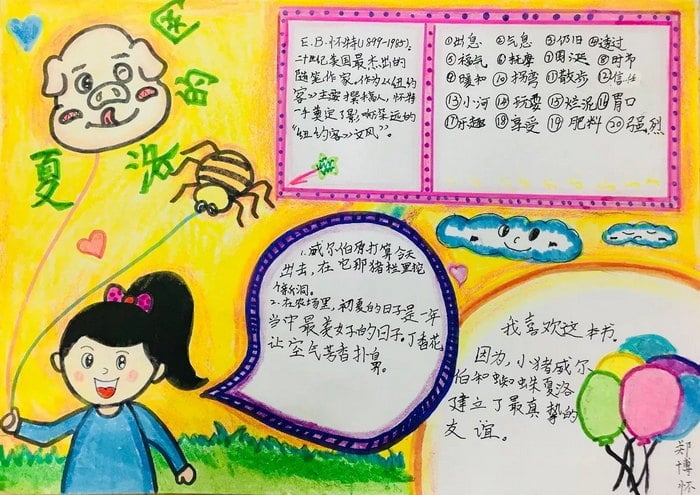 夏洛的网
E.B.怀特(1899-1985):
二十世纪美国最杰出的
随笔作家,作为《纽约
客》主要撰稿人,怀特
一手奠定了影响深远的
“《纽约客》文风”。
①出息 ②气息 ③仍旧 ④透过
⑤ ⑥抚摩 ⑦ ⑧时节
⑨暖和 ⑩拐弯 ⑪散步 ⑫信任
⑬小河 ⑭玩耍 ⑮烂泥 ⑯胃口
⑰乐趣 ⑱享受 ⑲肥料 ⑳强烈
1.威尔伯原打算今天
出去,在它那猪栏里挖
个新洞。
2.在农场里,初夏的日子是一年
当中最美好的日子。丁香花
让空气芳香扑
鼻。
我喜欢这本书。
因为,小猪威尔
伯和蜘蛛夏洛
建立了最真挚的
友谊。
郑博怀